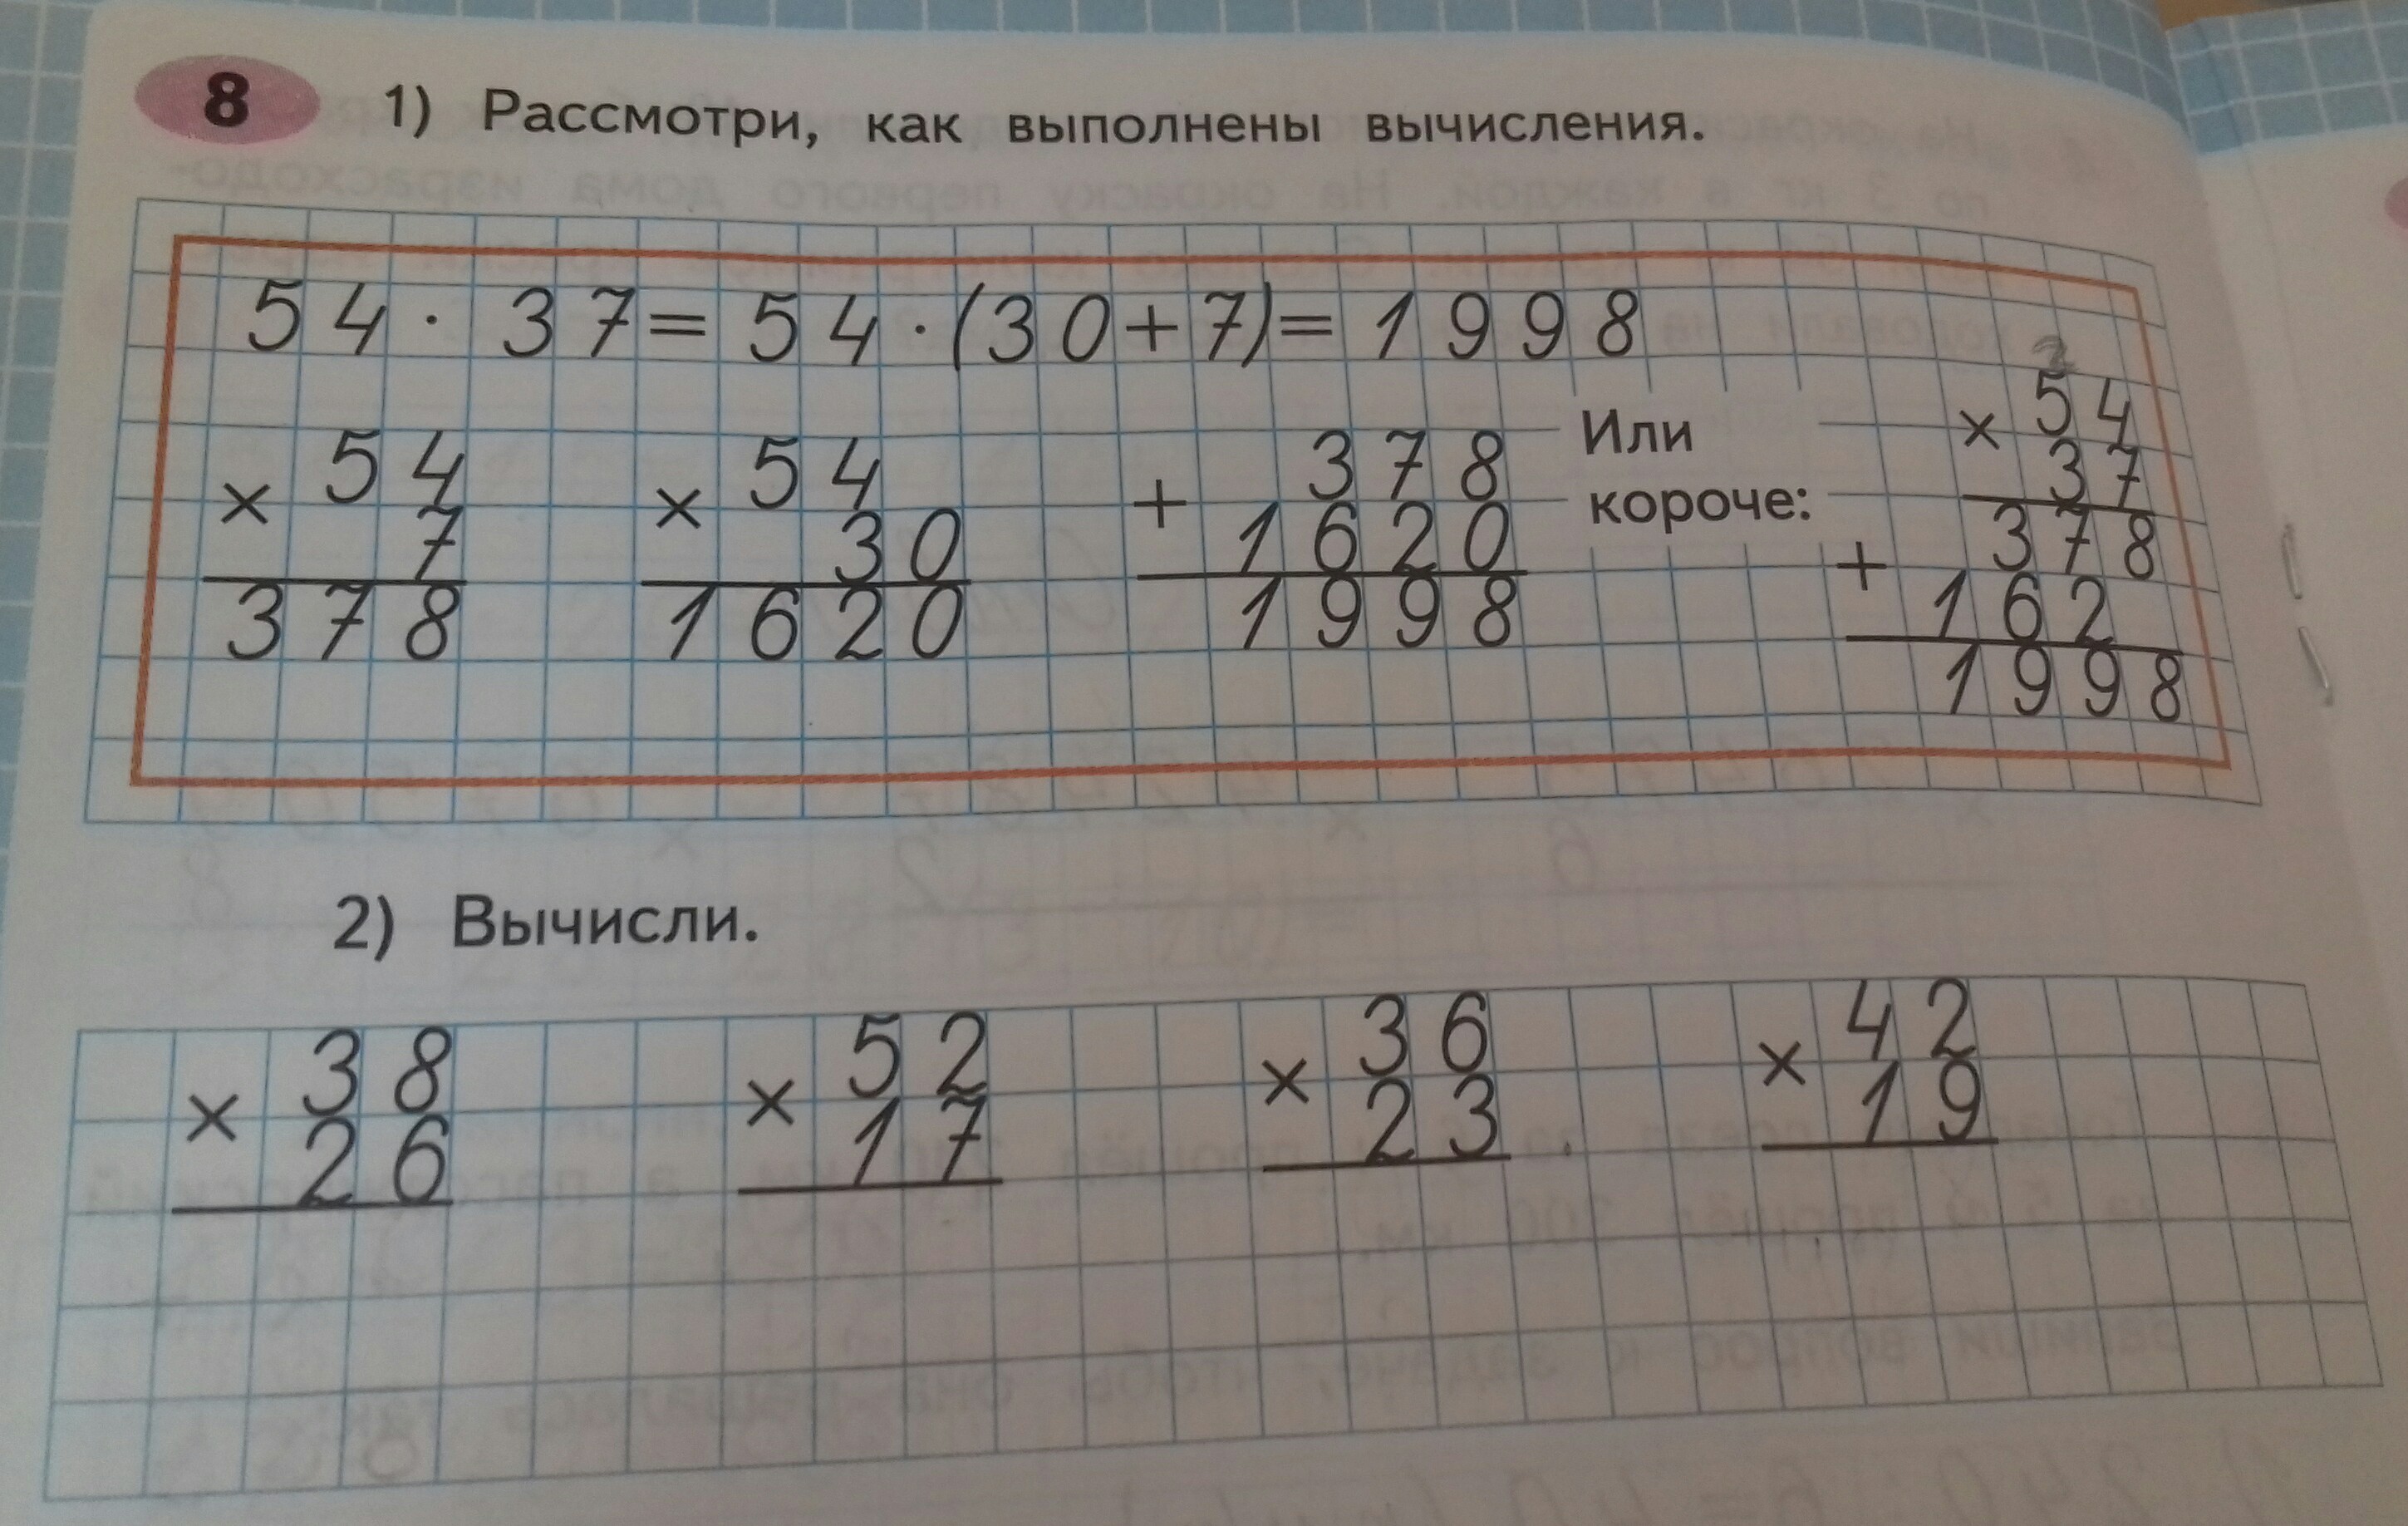 8 1) Рассмотри, как выполнены вычисления.
54 · 37 = 54 · (30 + 7) = 1998
× 54
7
378
× 54
30
1620
+ 378
1620
1998
Или
короче:
2
× 54
37
378
+ 162
1998
2) Вычисли.
× 38
26
× 52
17
× 36
23
× 42
19